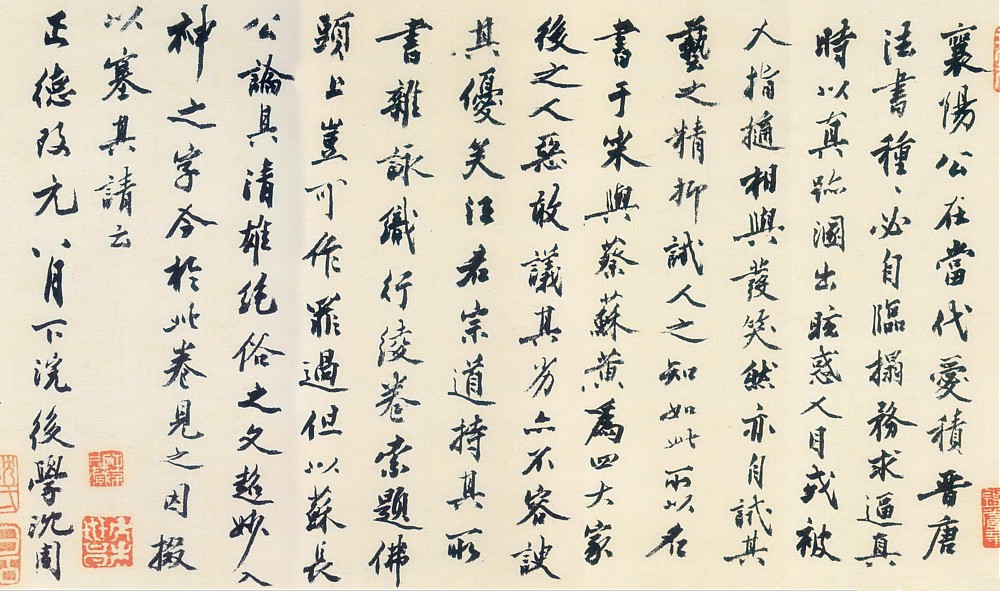 襄陽公在當代愛積晉唐
法書種〻必自臨搨務求逼真
時以真跡溷出眩惑人目或被
人指擿相與發笑然亦自試其
藝之精抑試人之知如此所以名
書于宋與蔡蘇黃為四大家
後之人惡敢議其劣亦不容諛
其優矣汪君宗道持其所
書雜詠織行綾卷索題佛
頭上豈可作罪過但以蘇長
公論其清雄絕俗之文超妙入
神之字今於此卷見之因掇
以塞其請云
正德改元八月下浣後學沈周